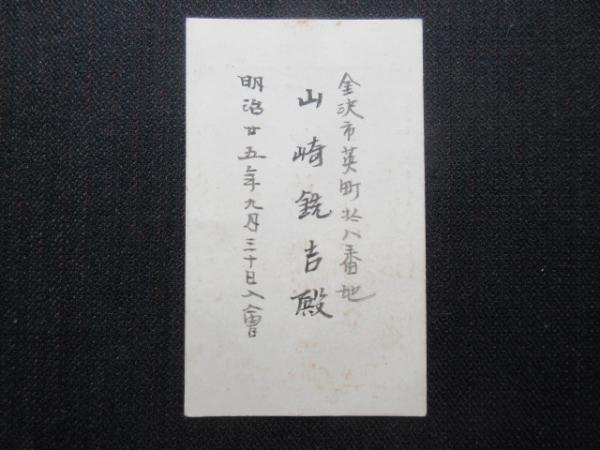 金沢市英町廿八番地
山崎銃吉殿
明治廿五年九月三十日入會